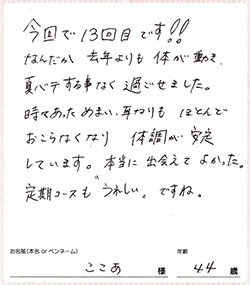 今回で13回目です!!
なんだか 去年よりも 体が動き、
夏バテする事なく 過ごせました。
時々あっためまい、耳なりも ほとんど
おこらなくなり 体調が安定
しています。本当に 出会えて よかった。
定期コースも “うれしい„ ですね。
お名前(本名 or ペンネーム) 年齢
ここあ 様 44 歳